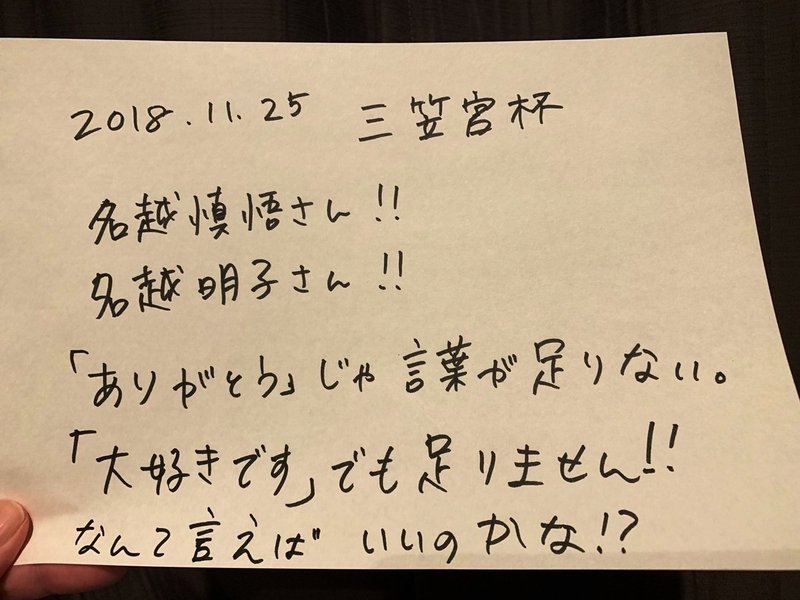 2018.11.25 三笠宮杯
名越慎悟さん!!
名越明子さん!!
「ありがとう」じゃ言葉が足りない。
「大好きです」でも足りません!!
なんて言えば いいのかな!?